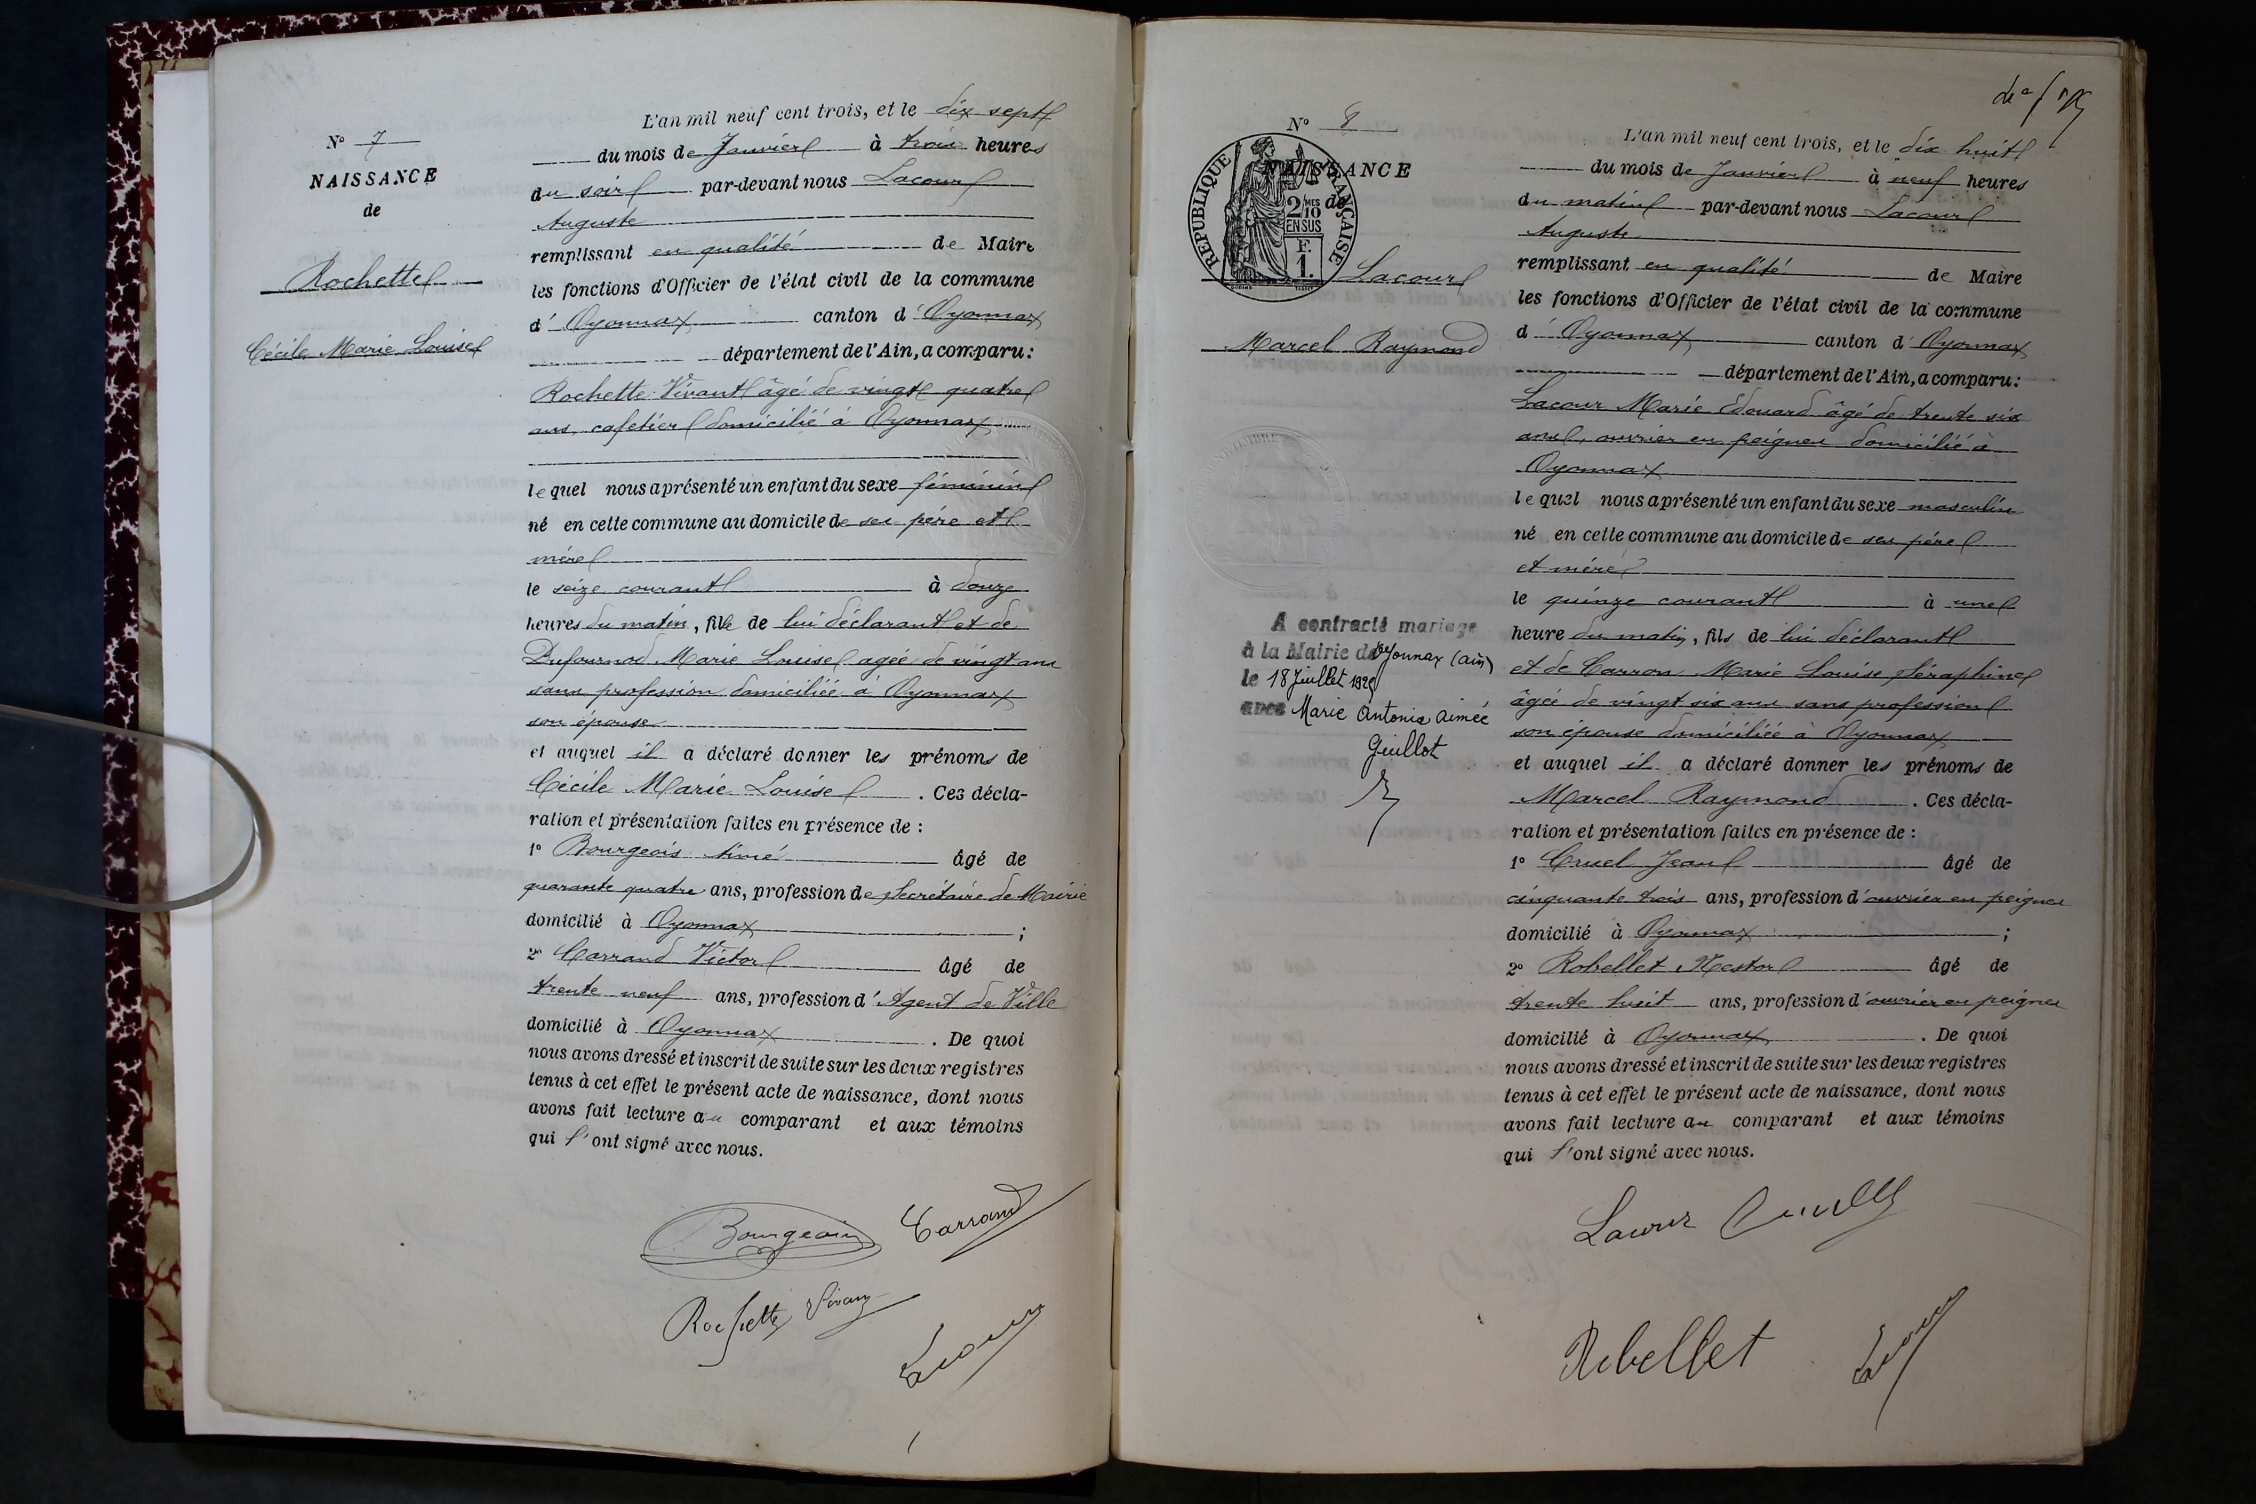 N° 7
NAISSANCE
de
Rochette
Cécile Marie Louise
L'an mil neuf cent trois, et le dix sept
du mois de Janvier à trois heures
du soir par-devant nous Lacour
Auguste
remplissant en qualité de Maire
les fonctions d'Officier de l'état civil de la commune
d' Oyonnax canton d' Oyonnax
département de l'Ain, a comparu:
Rochette Vivant âgé de vingt quatre
ans, cafetier domicilié à Oyonnax
lequel nous a présenté un enfant du sexe féminin
né en cette commune au domicile de ses père et
mère
le seize courant à douze
heures du matin, fille de lui déclarant et de
Dufournod Marie Louise agée de vingt ans
sans profession domiciliée à Oyonnax
son épouse
et auquel il a déclaré donner les prénoms de
Cécile Marie Louise . Ces décla-
ration et présentation faites en présence de :
1° Bourgeois Aimé âgé de
quarante quatre ans, profession de Secrétaire de Mairie
domicilié à Oyonnax ;
2° Carrand Victor âgé de
trente neuf ans, profession d' Agent de Ville
domicilié à Oyonnax . De quoi
nous avons dressé et inscrit de suite sur les deux registres
tenus à cet effet le présent acte de naissance, dont nous
avons fait lecture au comparant et aux témoins
qui l'ont signé avec nous.
Bourgeois Carrand
Rochette Vivant
Lacour
N° 8
NAISSANCE
de
RÉPUBLIQUE FRANÇAISE
2/10 MES
EN SUS
F.
1.
Lacour
Marcel Raymond
A contracté mariage
à la Mairie de Oyonnax (ain)
le 18 Juillet 1925
avec Marie Antonia Aimée
Guillot
L'an mil neuf cent trois, et le dix huit
du mois de Janvier à neuf heures
du matin par-devant nous Lacour
Auguste
remplissant en qualité de Maire
les fonctions d'Officier de l'état civil de la commune
d' Oyonnax canton d' Oyonnax
département de l'Ain, a comparu:
Lacour Marie Edouard âgé de trente six
ans, ouvrier en peignes domicilié à
Oyonnax
lequel nous a présenté un enfant du sexe masculin
né en cette commune au domicile de ses père
et mère
le quinze courant à une
heure du matin, fils de lui déclarant
et de Carron Marie Louise Séraphine
âgée de vingt six ans sans profession
son épouse domiciliée à Oyonnax
et auquel il a déclaré donner les prénoms de
Marcel Raymond . Ces décla-
ration et présentation faites en présence de :
1° Cruel Jean âgé de
cinquante trois ans, profession d' ouvrier en peignes
domicilié à Oyonnax ;
2° Robellet Nestor âgé de
trente huit ans, profession d' ouvrier en peignes
domicilié à Oyonnax . De quoi
nous avons dressé et inscrit de suite sur les deux registres
tenus à cet effet le présent acte de naissance, dont nous
avons fait lecture au comparant et aux témoins
qui l'ont signé avec nous.
Lacour Cruel
Rebellet Lacour